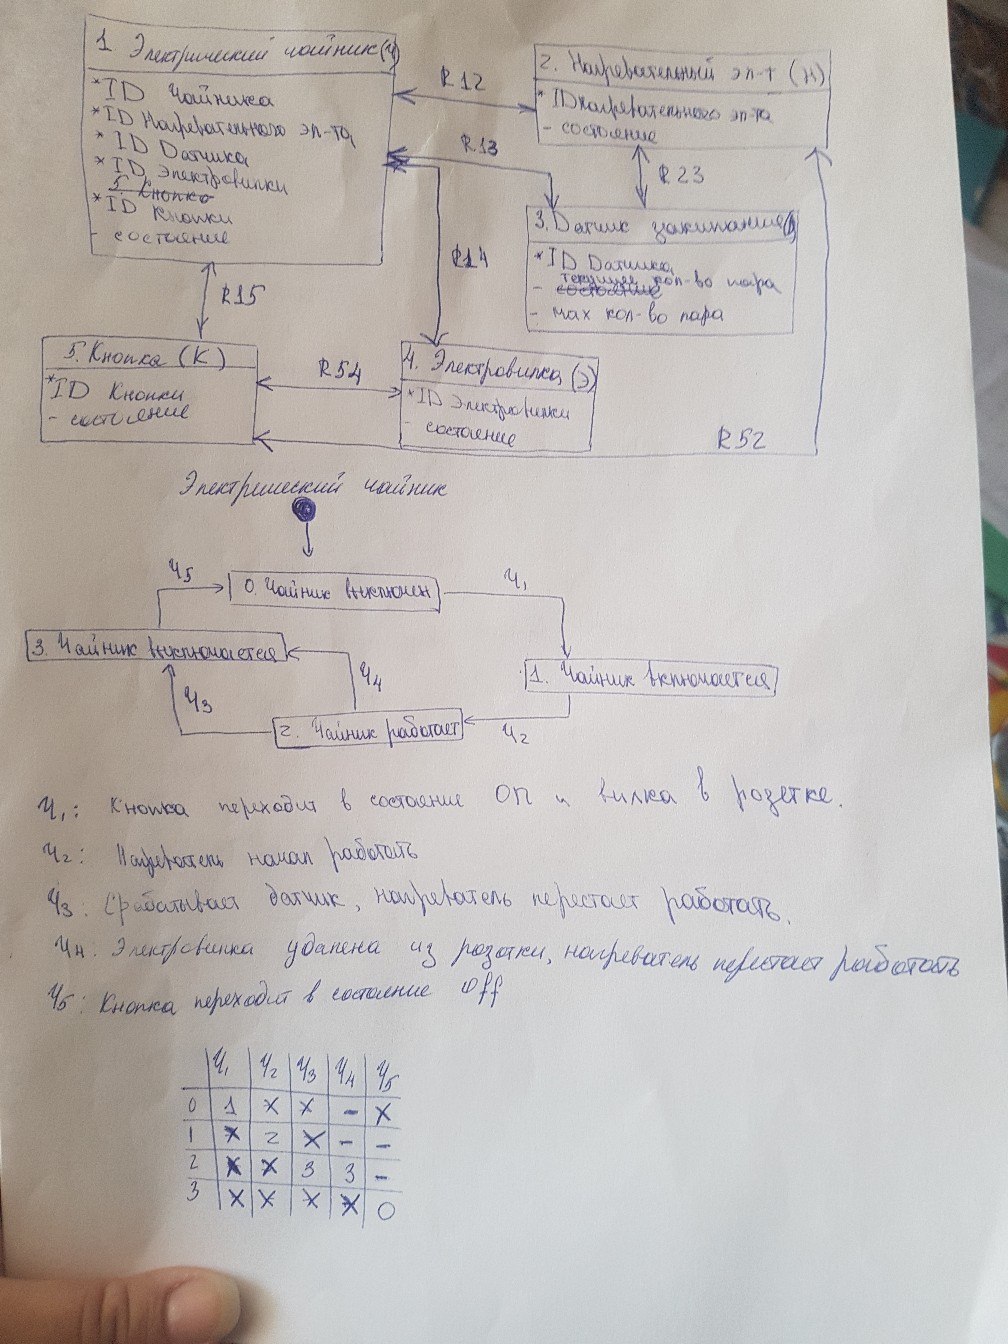 1 Электрический чайник(Ч)
*ID Чайника
*ID Нагревательного эл-та
*ID Датчика
*ID Электровилки
5. Кнопка
*ID Кнопки
- состояние
R12
2. Нагревательный эл-т (Н)
*ID нагревательного эл-та
- состояние
R13
R23
3. Датчик закипания(Д)
*ID Датчика
текущее кол-во пара
- состояние
- мах кол-во пара
R14
R15
5. Кнопка (К)
*ID Кнопки
- состояние
R54
4. Электровилка (Э)
*ID Электровилки
- состояние
R52
Электрический чайник
0. Чайник выключен
Ч5
Ч1
3. Чайник выключается
1. Чайник включается
Ч3
Ч4
2. Чайник работает
Ч2
Ч1: Кнопка переходит в состояние On и вилка в розетке.
Ч2: Нагреватель начал работать
Ч3. Срабатывает датчик, нагреватель перестает работать.
Ч4. Электровилка удалена из розетки, нагреватель перестает работать
Ч5: Кнопка переходит в состояние Off
Ч1 Ч2 Ч3 Ч4 Ч5
0 1 × × - ×
1 × 2 × - -
2 × × 3 3 -
3 × × × × 0